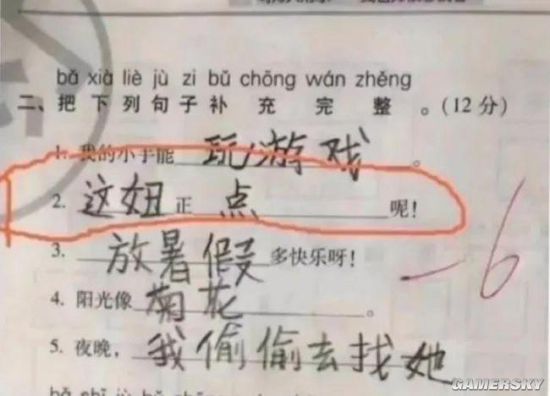 bǎ xià liè jù zi bǔ chōng wán zhěng
二、把下列句子补充完整。(12分)
1. 我的小手能玩游戏。
2. 这妞正点呢!
3. 放暑假多快乐呀!
-6
4. 阳光像菊花。
5. 夜晚,我偷偷去找她
GAMERSKY